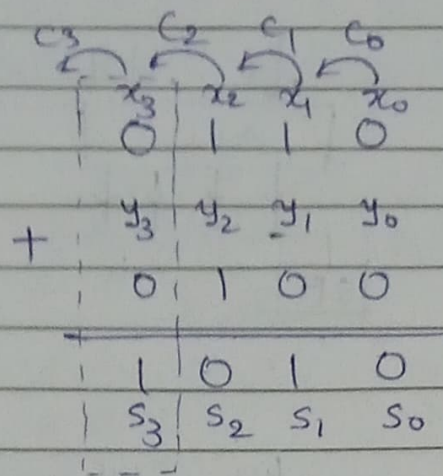 C3 C2 C1 C0
x3 x2 x1 x0
0 1 1 0
y3 y2 y1 y0
+
0 1 0 0
1 0 1 0
S3 S2 S1 S0